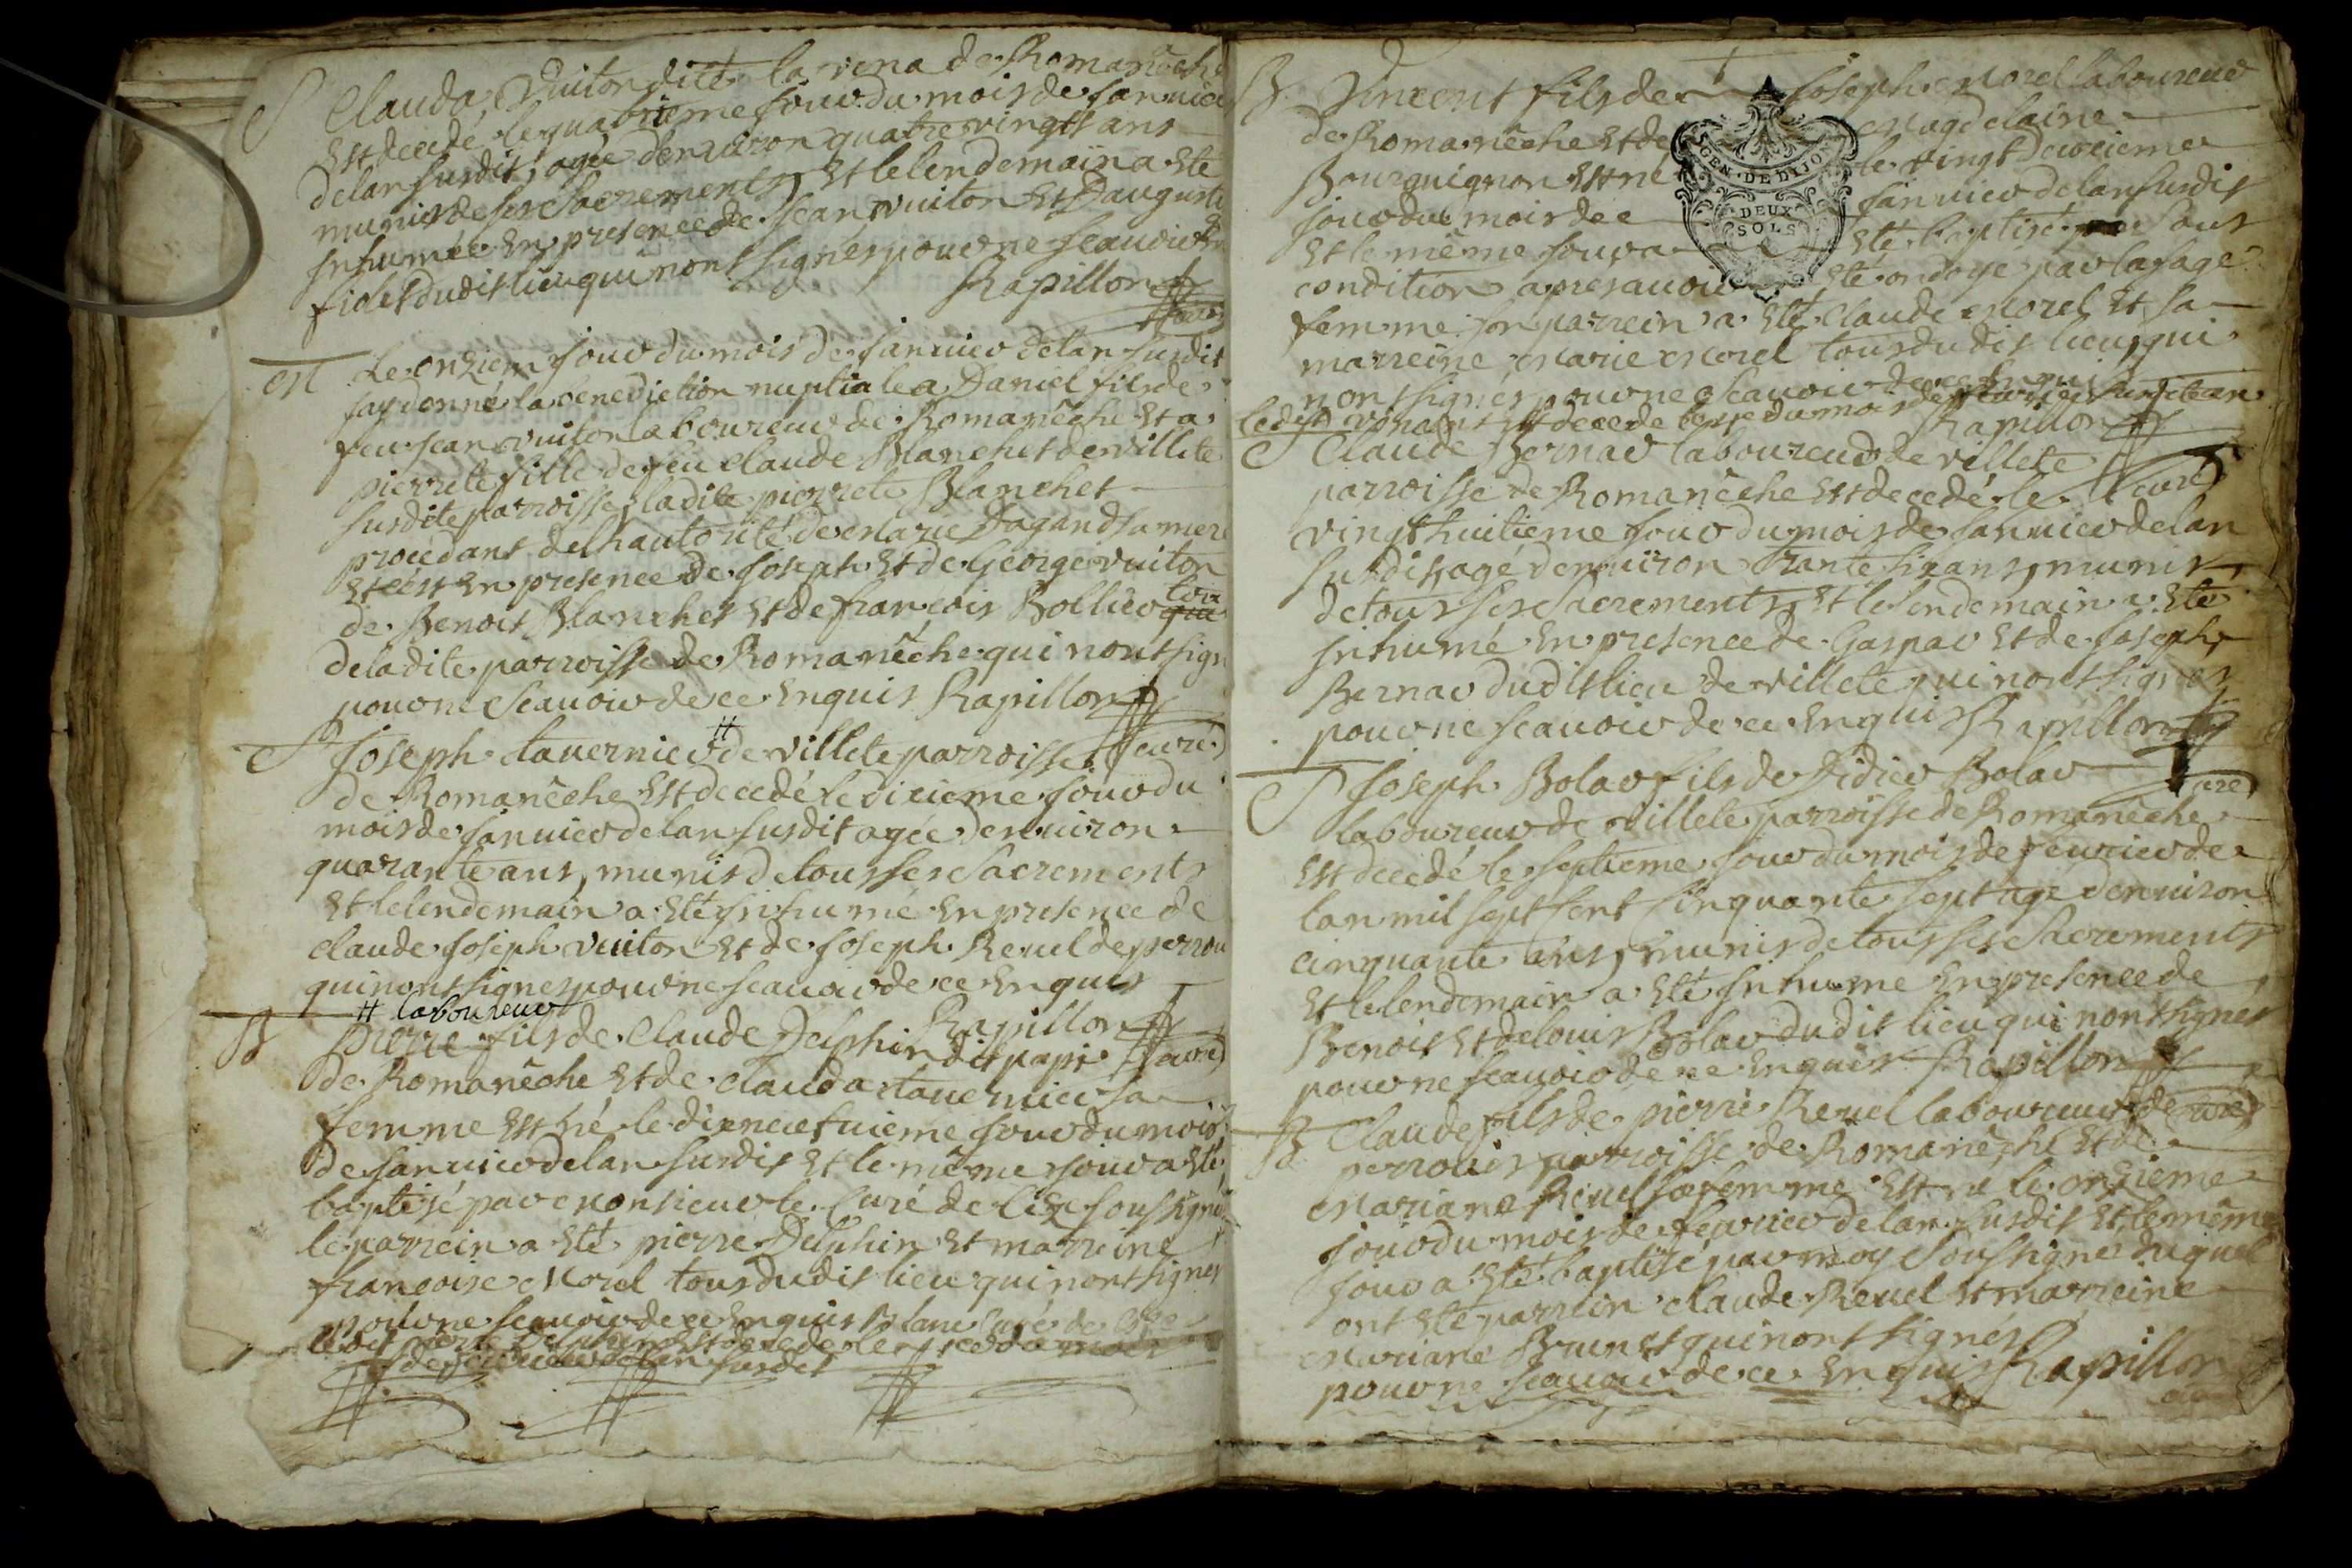 S Clauda Vuiton dite la rena de Romanêche
Est decedé le quatrieme jour du mois de janvier
de lan susdit, agée denviron quatre vingts ans
munis de ses Sacrements Et le lendemain a Eté
inhumée En presence de jean vuiton Et Dauguste
fiolet dudit lieu qui nont signés pour ne scauoir
Rapillon
curé
M Le onziem jour du mois de januier de lan susdit
jay donné la benediction nuptiale a Daniel fils de
feu jean vuiton laboureur de Romanêche Et a
pierrete fille de feu claude Blanchet de villete
susdite parroisse, ladite pierrete Blanchet
procedant de lhautorité de Marie Dagand sa mere
Et cest En presence de joseph Et de George vuiton
de Benoit Blanchet Et de francois Bollier tous
de ladite parroisse de Romanêche qui nont sign
pour ne scauoir de ce Enquis Rapillon
curé
S Joseph tauernier # de villete parroisse
de Romanêche Est decedé le dixieme jour du
mois de januier de lan susdit agée denuiron
quarante ans, munis de tous ses Sacrements
Et le lendemain a Eté inhumé En presence de
claude joseph vuiton Et de joseph Reuel de perrou
qui nont signes pour ne scauoir de ce Enquis
# laboureur
Rapillon
curé
B pierre fils de Claude Delphin dit papi
de Romanêche Et de clauda tauernier sa
femme Est né le dixneufuieme jour du mois
de januier de lan susdit Et le même jour a Eté
baptisé par Monsieur le Curé de Cize soussigné
le parrein a Eté pierre Delphin Et marreine
francoise Morel tous dudit lieu qui nont signes
pour ne scauoir de ce Enquis Blanc Curé de Cize
ledit pierre Delphin Est decede le du mois
de feurier de lan susdit
B Vincent fils de joseph Morel laboureur
de Romanêche Et de Magdelaine
Bourguignon Est né le vingt Deuxieme
jour du mois de januier de lan susdit
Et le même jour a Eté baptisé sous
condition apres auoir Eté ondoyé par la sage
GEN. DE DIJON
DEUX
SOLS
femme son parrein a Eté claude Morel Et sa
marreine Marie Morel tous dudit lieu, qui
nont signés pour ne scauoir de ce Enquis
ledit vincent Est decede le du mois de feurier susdit an
Rapillon
curé
S Claude Bernar laboureur de villete
parroisse de Romanêche Est decedé le
vingt huitieme jour du mois de januier de lan
susdit, agé denuiron trante six ans, munis
de tous ses Sacrements, Et le lendemain a Eté
inhumé En presence de Gaspar Et de joseph
Bernar dudit lieu de villete qui nont signes
pour ne scauoir de ce Enquis Rapillon
curé
S Joseph Bolar fils de Didier Bolar
laboureur de villete parroisse de Romanêche
Est decedé le septieme jour du mois de feurier de
lan mil sept Cent Cinquante sept agé denuiron
cinquante ans, munis de tous ses Sacrements
Et le lendemain a Eté inhume En presence de
Benoit Et de louis Bolar dudit lieu qui nont signes
pour ne scauoir de ce Enquis Rapillon
curé
B Claude fils de pierre Reuel laboureur de
perrouis parroisse de Romanêche Et de
Mariane Reuel sa femme Est né le onzieme
jour du mois de feurier de lan susdit Et le même
jour a Eté baptisé par moy Soussigné duquel
ont Eté parrein claude Reuel Et marreine
Mariane Brunet qui nont signés
pour ne scauoir de ce Enquis Rapillon